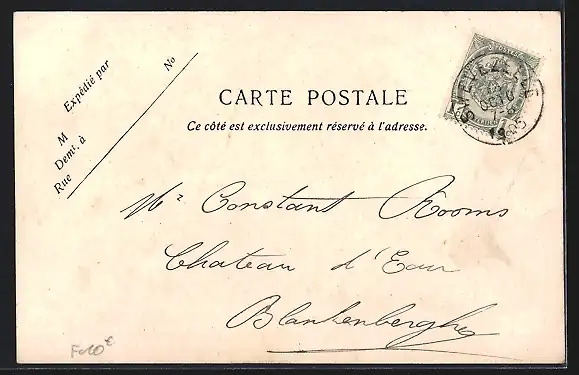 Expédié par
M
Demt. à
Rue
No
CARTE POSTALE
Ce côté est exclusivement réservé à l'adresse.
Mr Constant Rooms
Chateau d'Eau
Blankenberghe